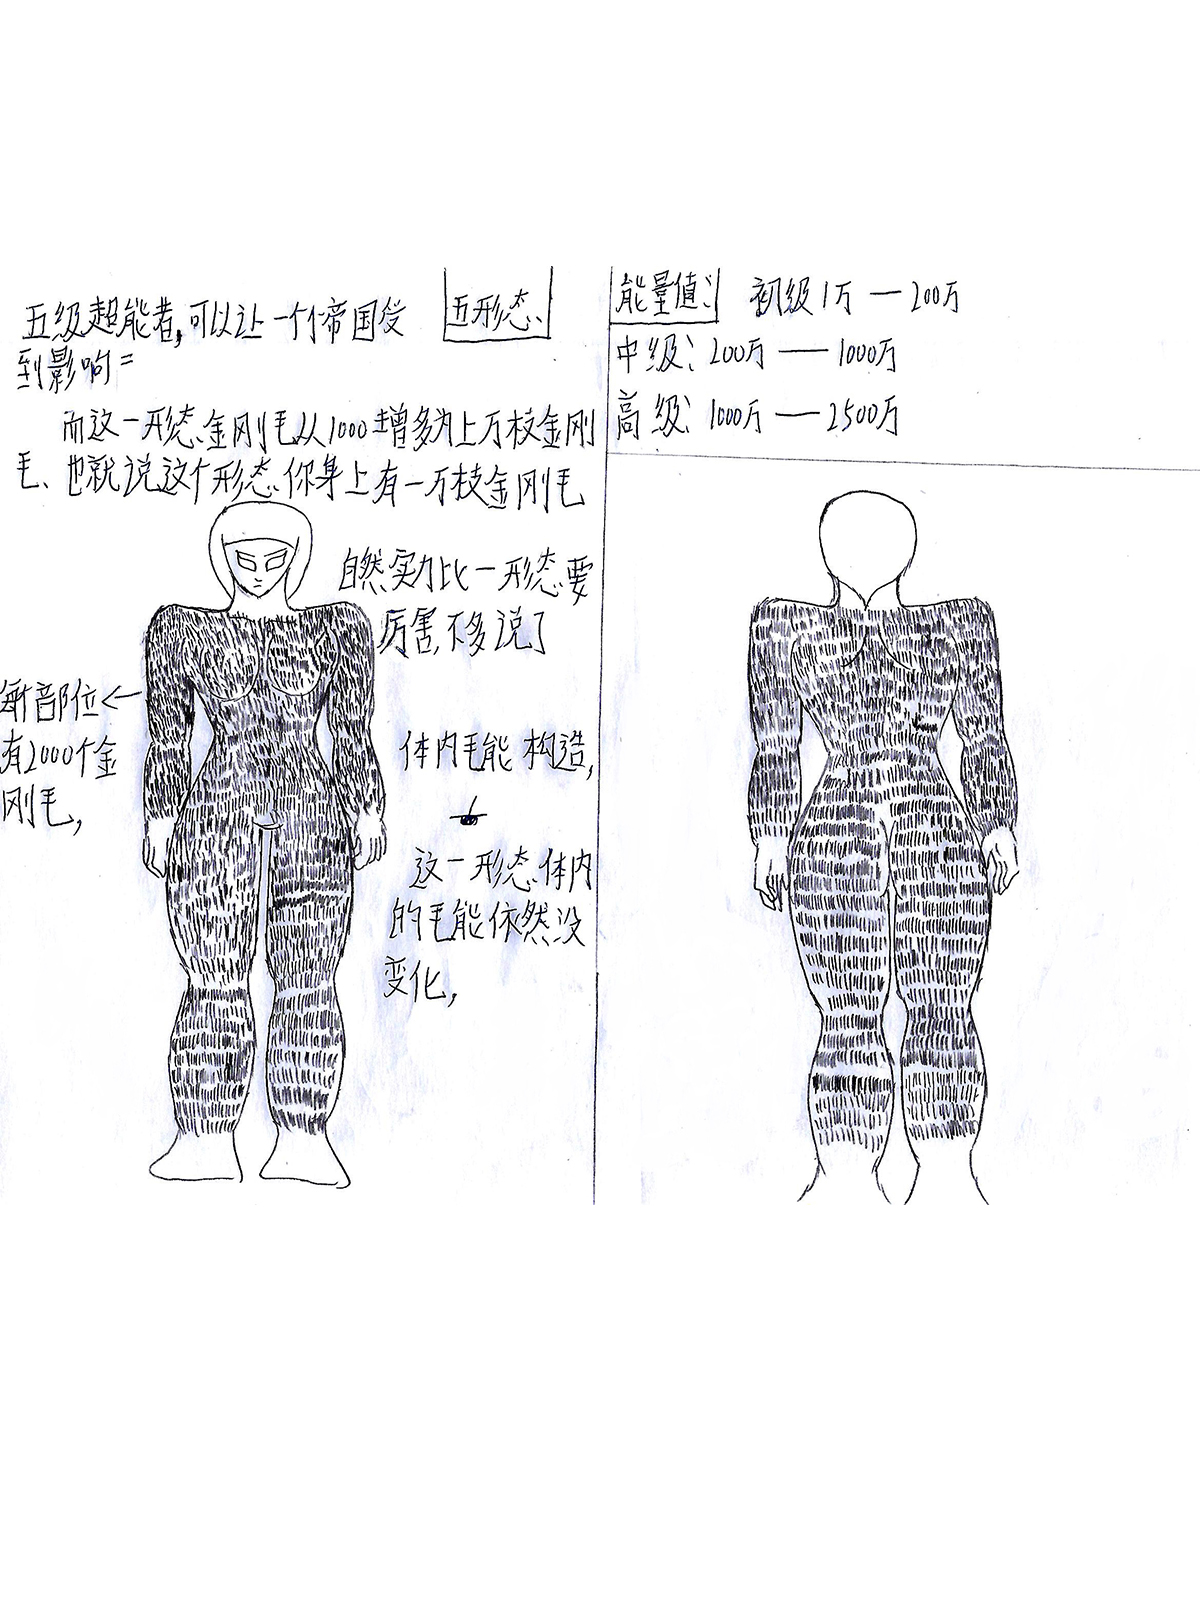 五级超能者,可以让一个帝国受
到影响=
五形态、
而这一形态、金刚毛从1000增多为上万枝金刚
毛、也就说这个形态、你身上有一万枝金刚毛
自然实力比一形态、要
厉害,不多说了
每个部位←
有2000个金
刚毛,
体内毛能构造,
这一形态、体内
的毛能依然没
变化,
能量值:
初级1万一200万
中级:200万——1000万
高级:1000万——2500万